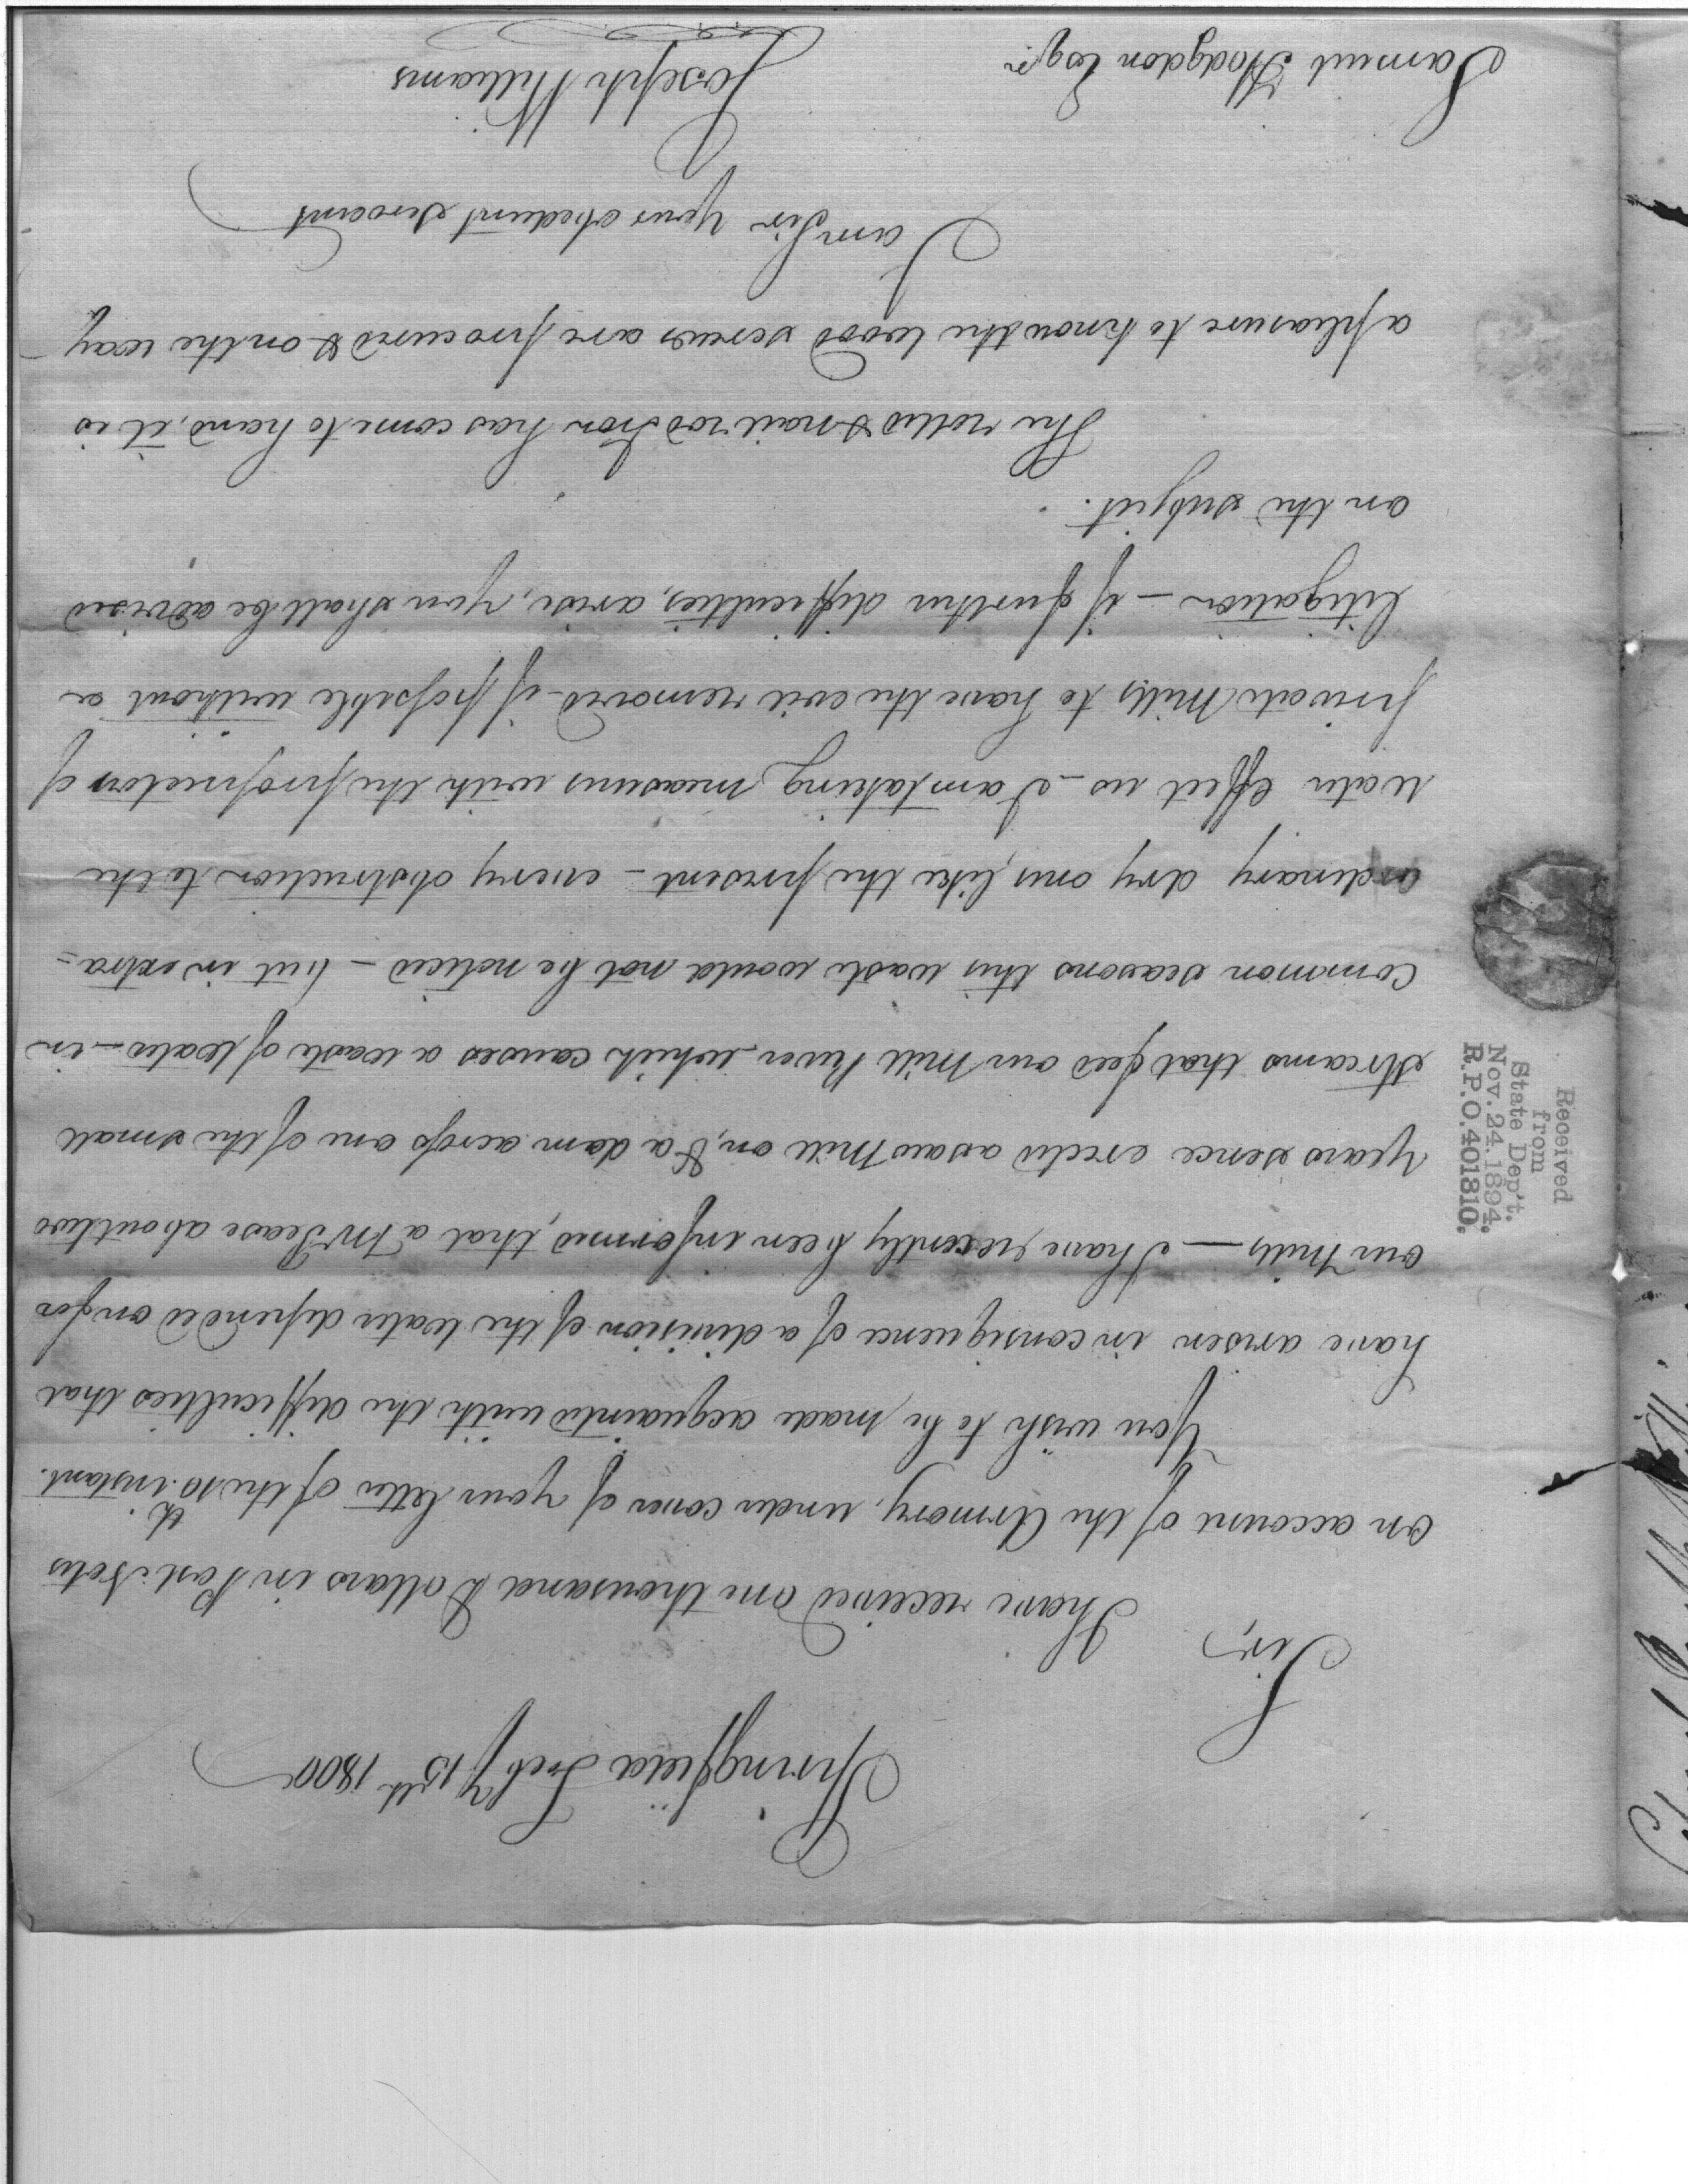 Springfield Feby 15th 1800
Sir,
I have received one thousand Dollars in Post Notes
on account of the Armory, under cover of your letter of the 10th instant.
You wish to be made acquainted with the difficulties that
have arisen in consequence of a division of the water depended on for
our Mills — I have recently been informed, that a Mr Pease about two
years sence erected a saw Mill on, & a dam across one of the small
streams that feed our Mill River which causes a waste of Water – in
common seasons this waste would not be noticed – but in extra=
ordinary dry ones, like the present – every obstruction to the
Water effect us – I am taking measures with the proprietors of
private Mills to have the evil removed – if possible without a
litigation – if further difficulties, arise, you shall be advised
on the subject.
The rolled & nail rod Iron has come to hand, it is
a pleasure to know the wood screws are procured & on the way –
I am Sir your obedient servant
Joseph Williams
Samuel Hodgdon Esqr
Received
from
State Dep't.
Nov. 24. 1894.
R.P.O. 401310.